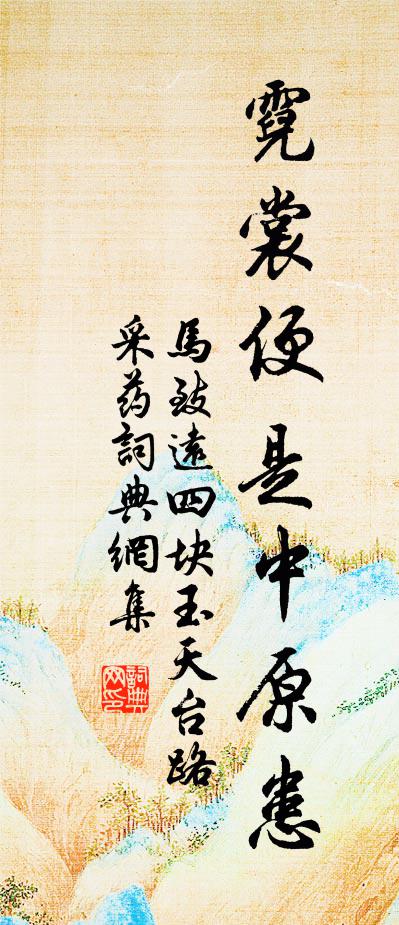 霓裳便是中原患
馬致遠四块玉天台路
采药詞典網集
詞典
网印